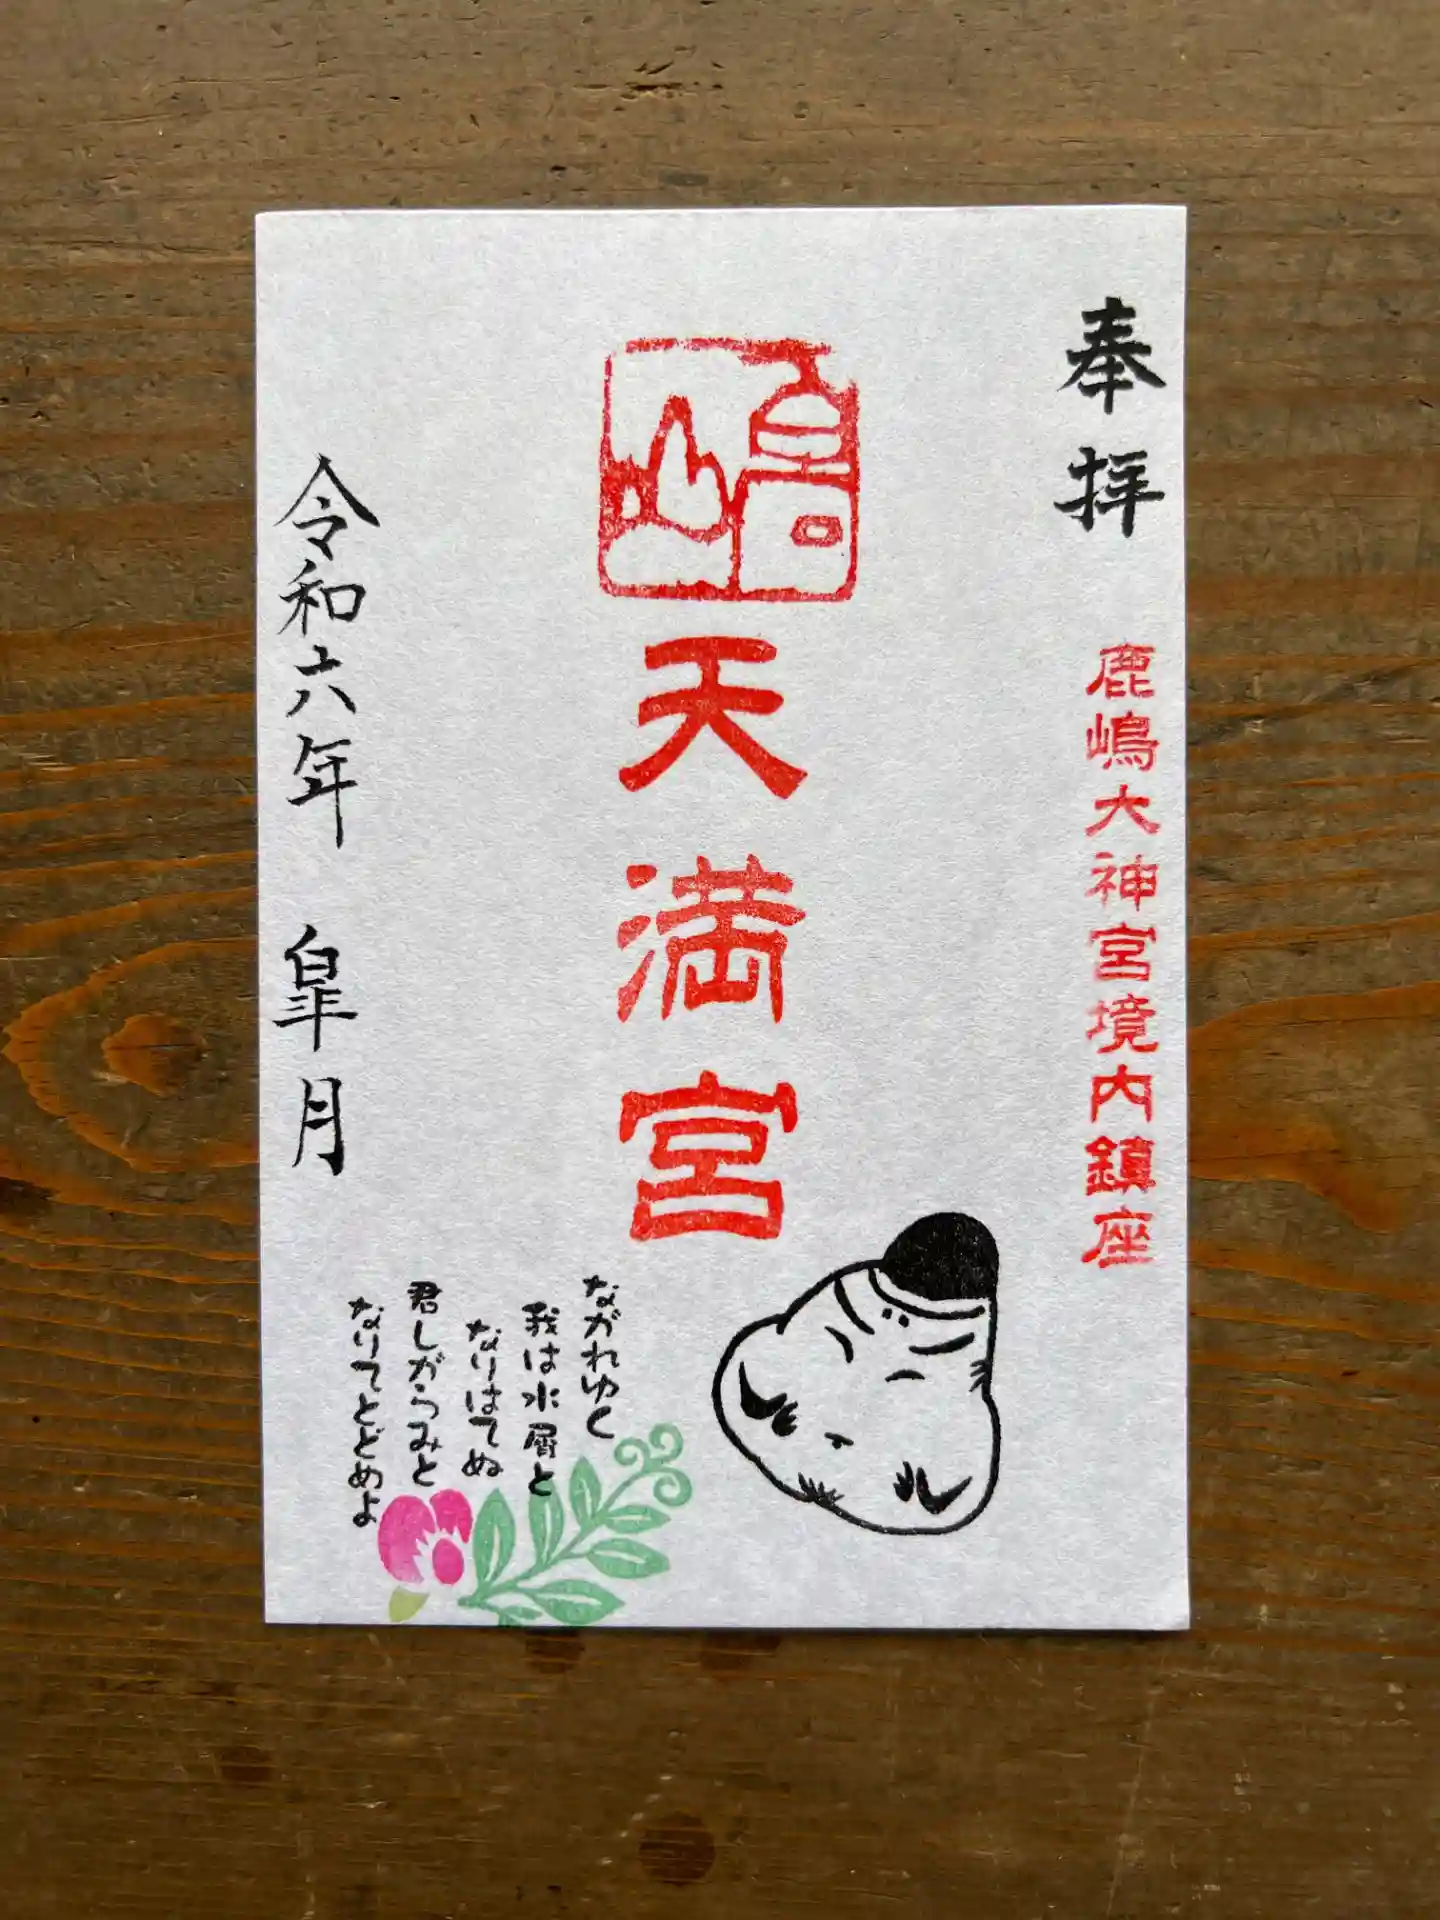 奉拝
鹿嶋大神宮境内鎮座
嶋
天満宮
ながれゆく
我は水屑と
なりはてぬ
君しがらみと
なりてとどめよ
令和六年 皐月